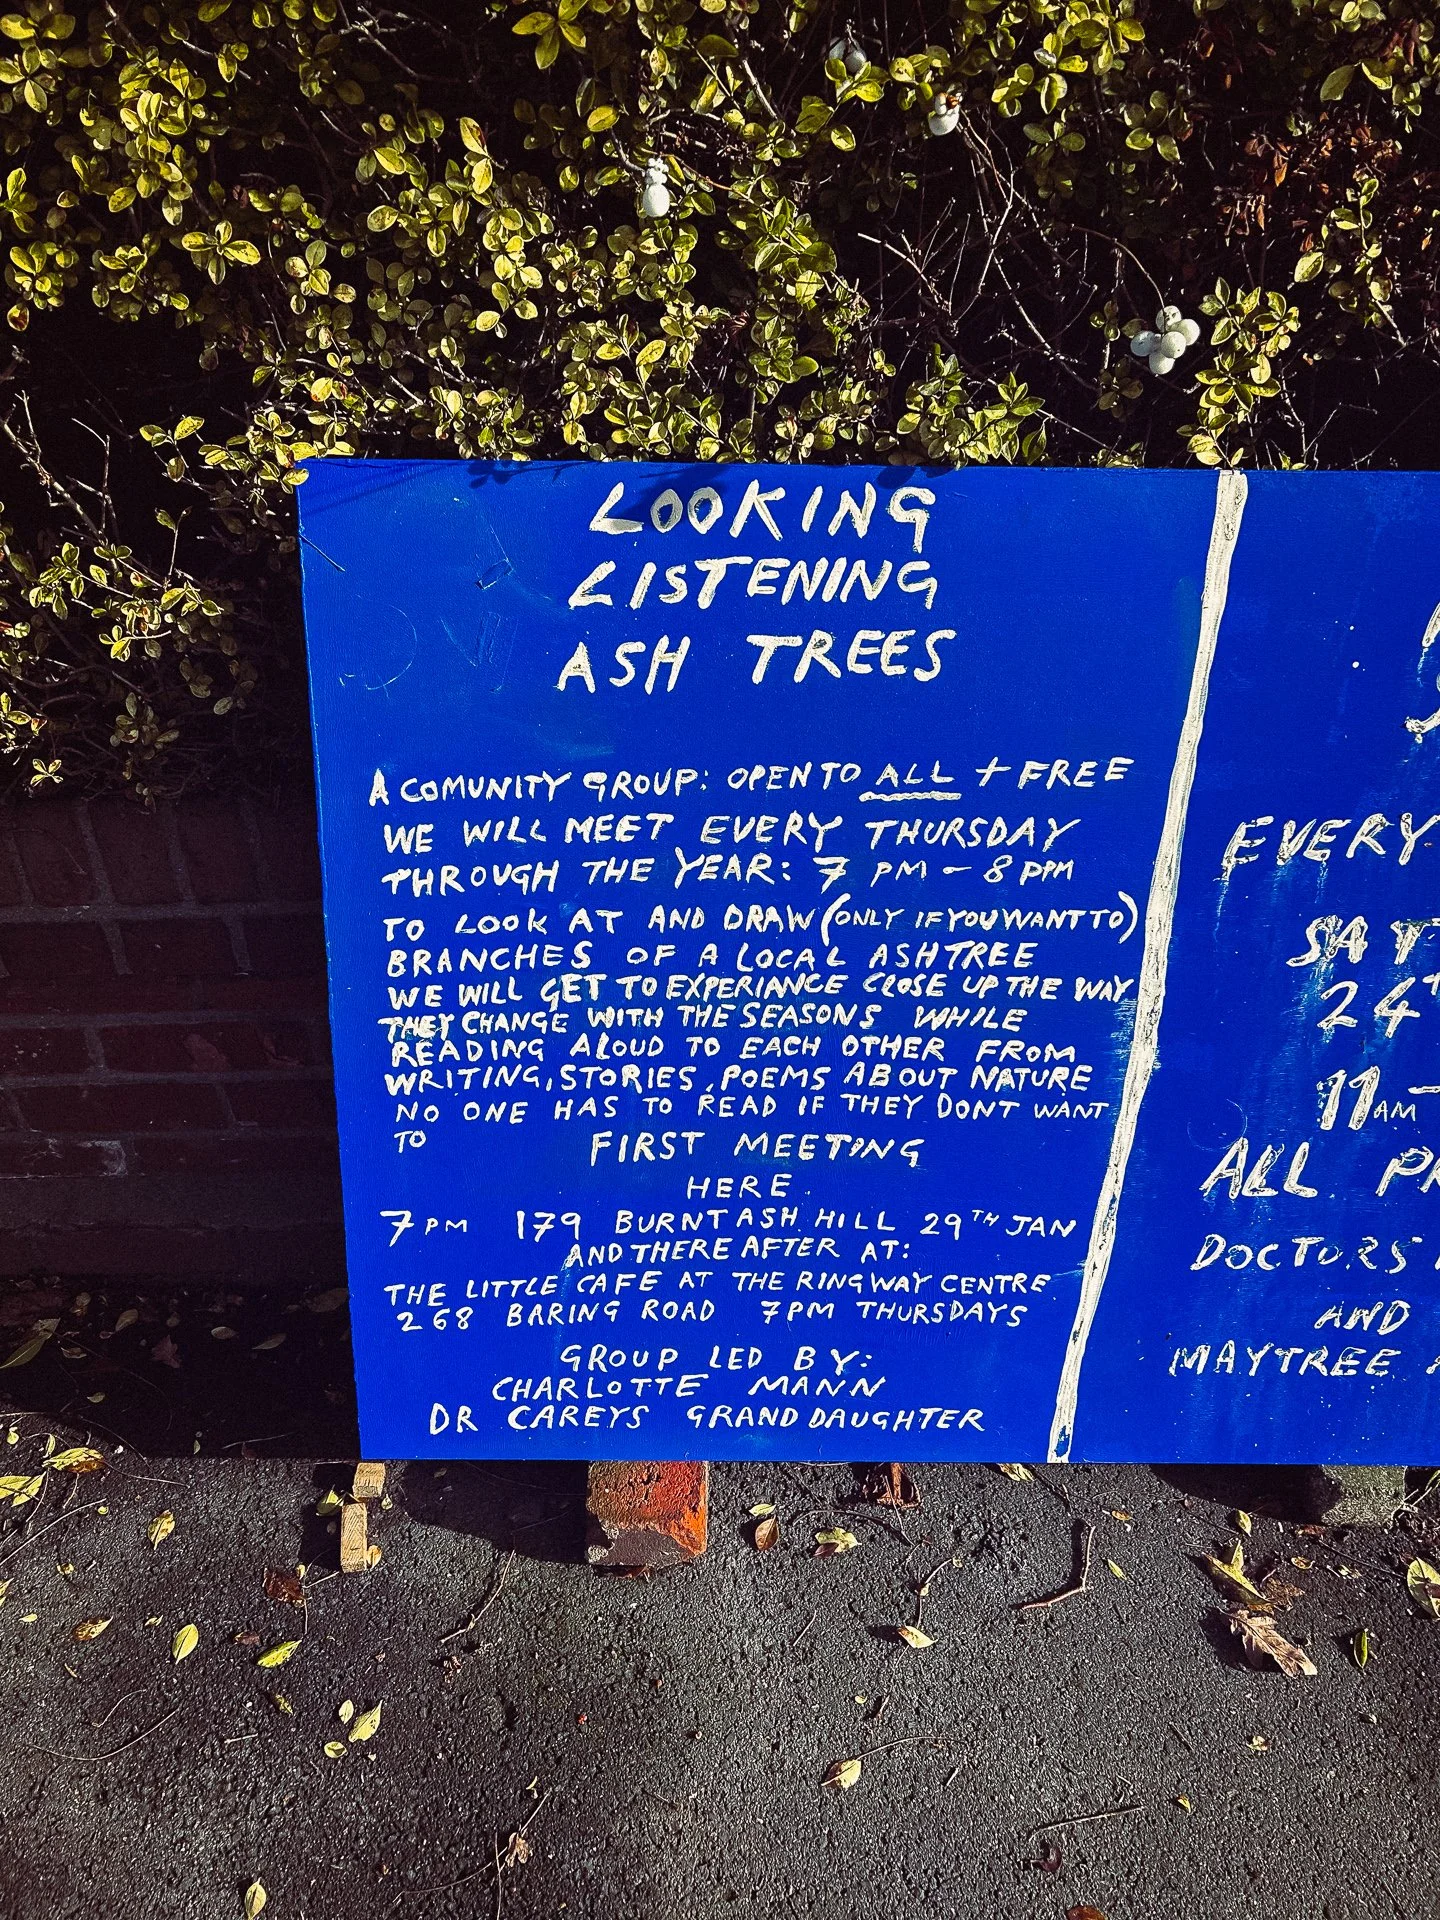 LOOKING
LISTENING
ASH TREES
A COMUNITY GROUP: OPEN TO ALL + FREE
WE WILL MEET EVERY THURSDAY
THROUGH THE YEAR: 7 PM - 8 PPM
TO LOOK AT AND DRAW (ONLY IF YOU WANT TO)
BRANCHES OF A LOCAL ASH TREE
WE WILL GET TO EXPERIANCE CLOSE UP THE WAY
THEY CHANGE WITH THE SEASONS WHILE
READING ALOUD TO EACH OTHER FROM
WRITING, STORIES, POEMS ABOUT NATURE
NO ONE HAS TO READ IF THEY DONT WANT
TO
FIRST MEETING
HERE.
7PM 179 BURNT ASH HILL 29TH JAN
AND THERE AFTER AT:
THE LITTLE CAFE AT THE RINGWAY CENTRE
268 BARING ROAD 7PM THURSDAYS
GROUP LED BY:
CHARLOTTE MANN
DR CAREYS GRAND DAUGHTER
EVERY
SAT
24
11AM-
ALL
DOCTORS
AND
MAYTREE